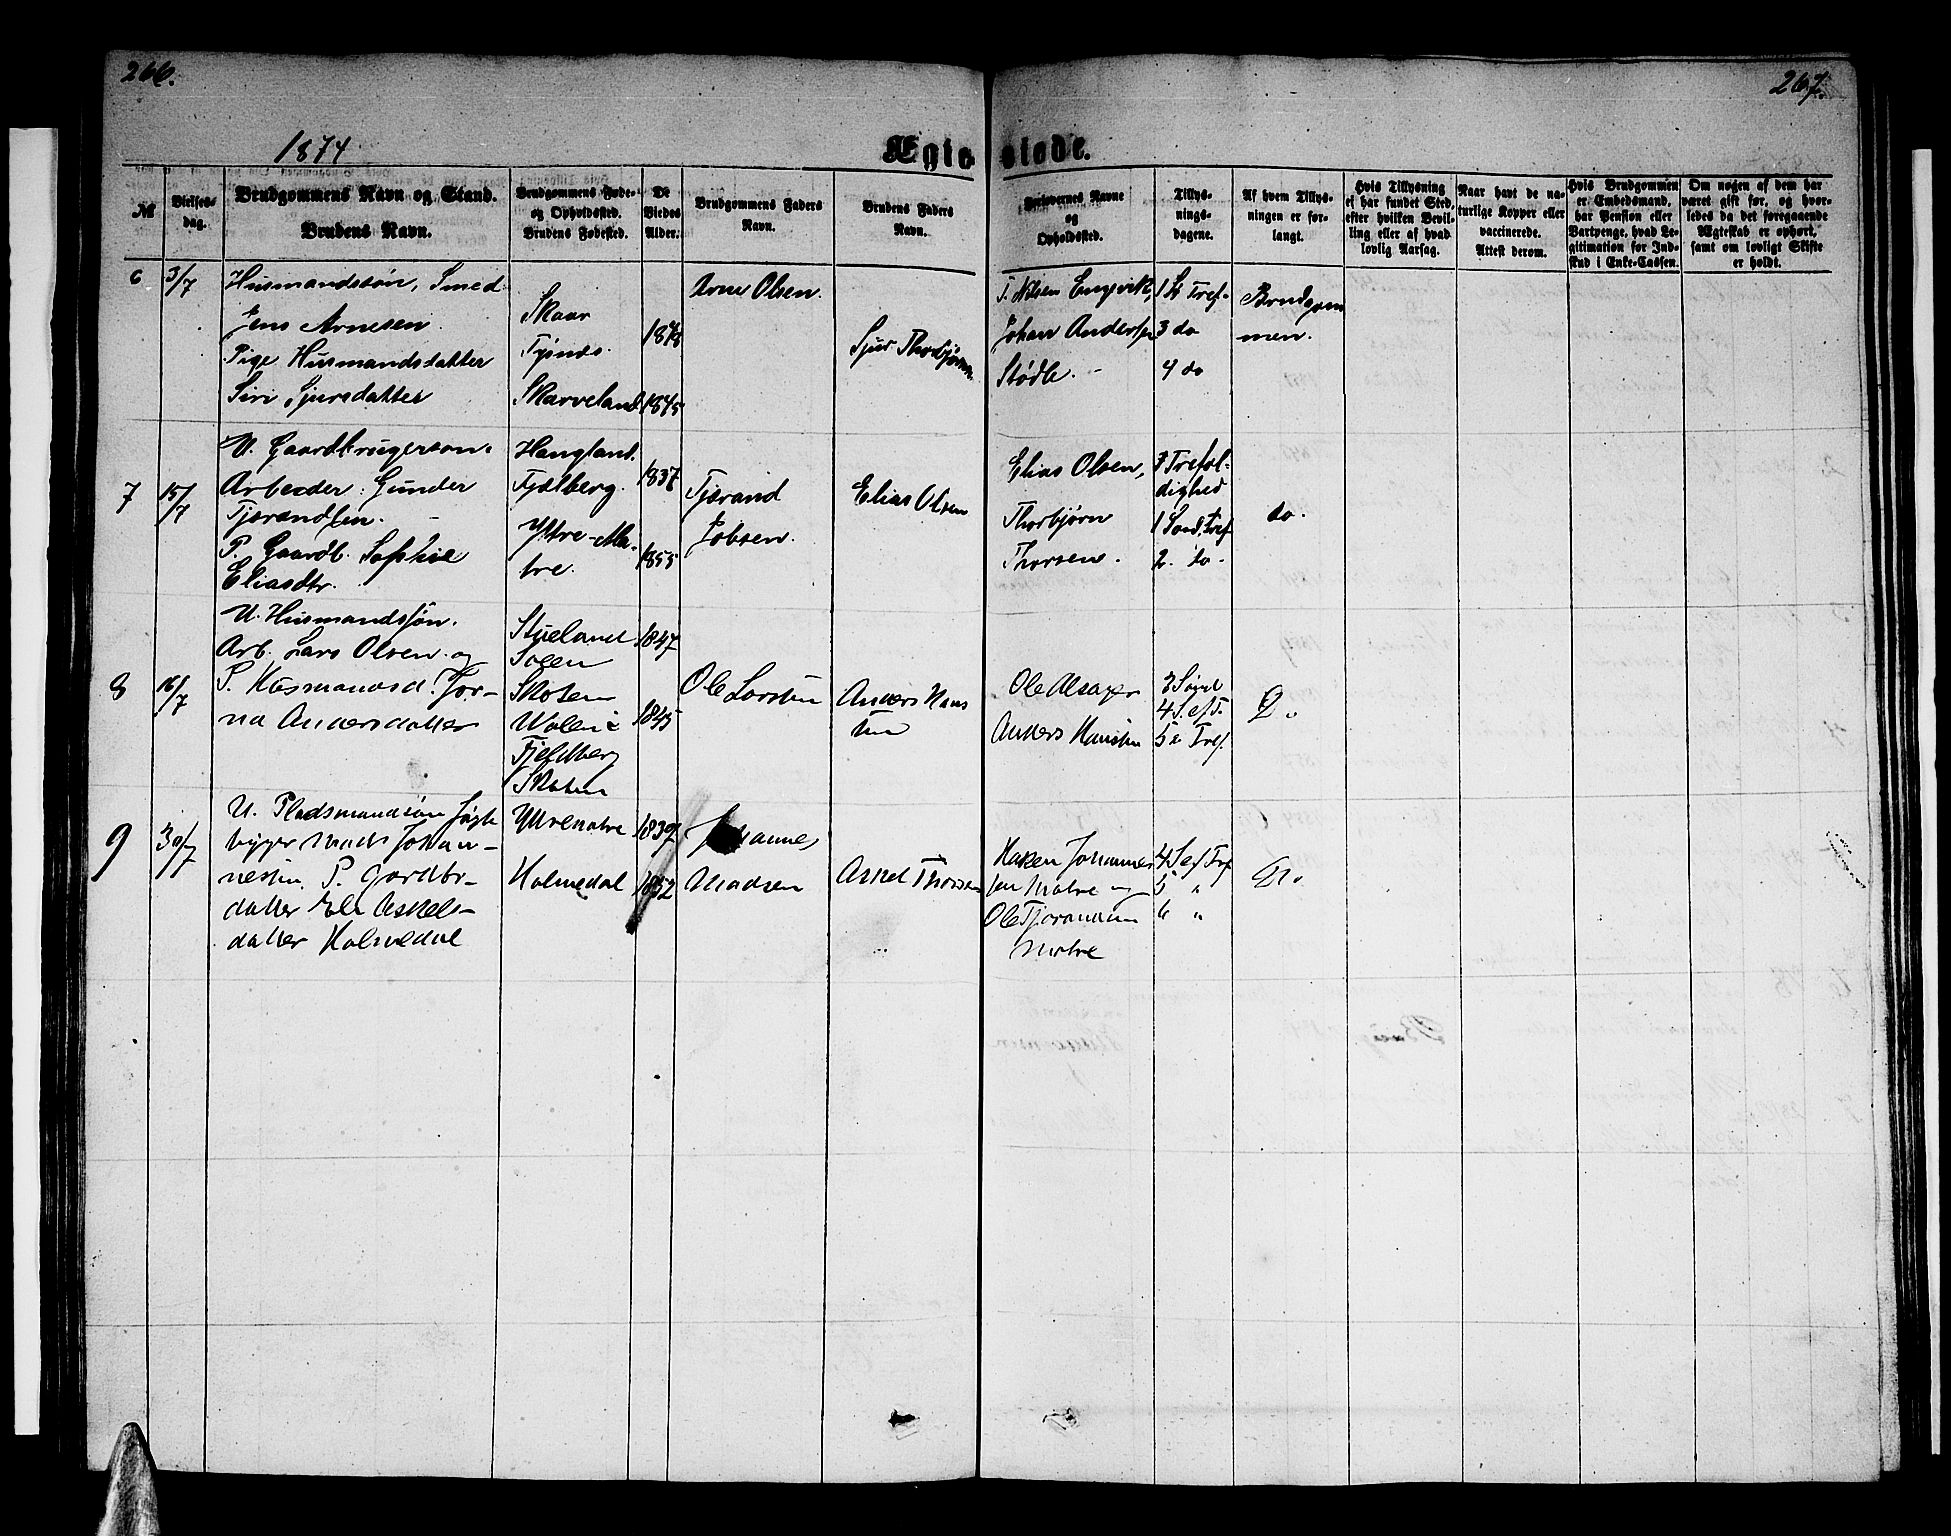 266.
267.
1874
Ægte-
stede.
№
Vielses-
dag.
Brudgommens Navn og Stand.
Brudens Navn.
Brudgommens Føde-
og Opholdssted.
Brudens Fødested.
De
Viedes
Alder.
Brudgommens Faders
Navn.
Brudens Faders
Navn.
Forlovernes Navne
og
Opholdssted.
Tillys-
nings-
dagene.
Af hvem Tillys-
ningen er for-
langt.
Hvis Tillysning
ej har fundet Sted,
efter hvilken Bevil-
ling eller af hvad
lovlig Aarsag.
Naar havt de na-
turlige Kopper eller
vaccinerede.
Attest derom.
Hvis Brudgommen
er Embedsmand,
har Pension eller
Vartpenge, hvad Le-
gitimation for Ind-
skud i Enke-Cassen.
Om nogen af dem har
været gift før, og hvor-
ledes da det foregaaende
Ægteskab er ophørt,
samt om lovligt Skifte
er holdt.
6
3/7
Husmandssøn, Smed
Jens Arnesen
Pige Husmandsdatter
Siri Sjursdatter
Skaar
Tysnes
Skarveland
1845
Arne Olsen.
Sjur Thorbjørn
T. Nilsen Engevik,
Johan Andersen
Stødle.
1 S. Tref.
3 do
4 do
Brudgom
men.
7
15/7
U. Gaardbrugerson.
Arbeider: Gunder
Tjerandsen.
P. Gaardb. Sophie
Eliasdtr.
Haugland.
Fjelberg.
Ytre-Ma-
tre.
1837
1855
Tjerand
Jobsen.
Elias Olsen
Elias Olsen,
Thorbjørn
Thorsen.
Trefol-
dighed
1 Sond. Tref
2. do.
do.
8
16/7
U. Husmandssøn.
Arb. Lars Olsen og
P. Husmandsd. Jor-
na Andersdatter
Stueland
Skoten
Fjeldberg
Skoten
1847
1845
Ole Larsen
Anders Hans
sen
Ole Alsager
Anders Hansen
3 Sønd
4 S. ef T.
5 " Tref.
D.
9
30/7
U. Pladsmandsøn Jægt
bygger Mads Johan-
nesen. P. Gardbr-
datter Eli Askels-
datter Holmedal
Ytrematre
Holmedal
1839
1852
Johannes
Madsen
Askel Thorsen
Haken Johannes
sen Matre og
Ole Tjerandsen
Matre
4 S. ef Tref
5 "
6 "
D.